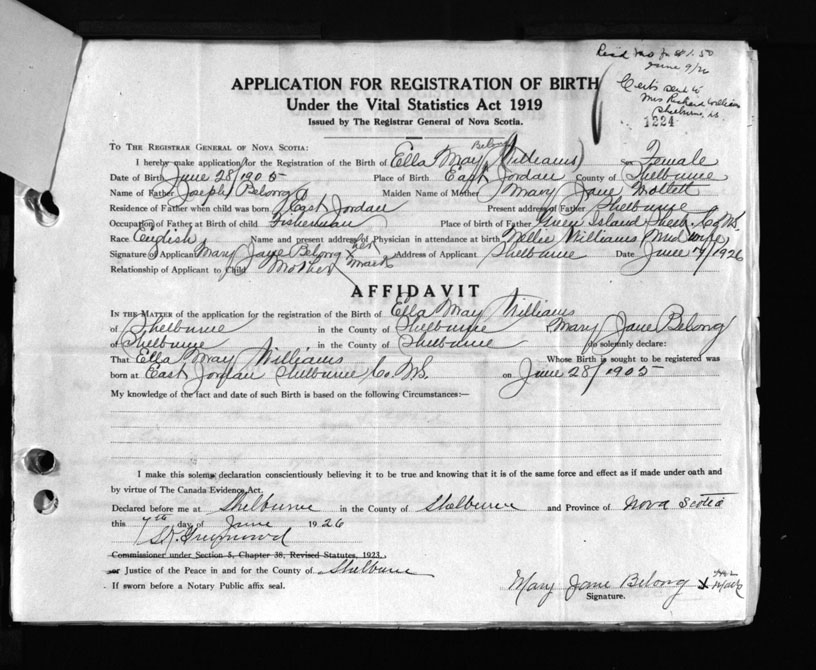 Rec'd $1.50
June 9/26
Certs sent to
Mrs Richard William
Shelburne NS
1224
APPLICATION FOR REGISTRATION OF BIRTH
Under the Vital Statistics Act 1919
Issued by The Registrar General of Nova Scotia.
TO THE REGISTRAR GENERAL OF NOVA SCOTIA:
Belong
I hereby make application for the Registration of the Birth of Ella May (Williams) Sex Female
Date of Birth June 28/1905 Place of Birth East Jordan County of Shelburne
Name of Father Joseph Belong Maiden Name of Mother Mary Jane
Residence of Father when child was born East Jordan Present address of Father Shelburne
Occupation of Father at Birth of child Fisherman Place of birth of Father Green Island Shelb. Co NS.
Race English Name and present address of Physician in attendance at birth Nellie Williams (Midwife)
Signature of Applicant Mary Jane Belong X her mark Address of Applicant Shelburne Date June 7/1926
Relationship of Applicant to Child Mother
AFFIDAVIT
IN THE MATTER of the application for the registration of the Birth of Ella May Williams
of Shelburne in the County of Shelburne Mary Jane Belong
of Shelburne, in the County of Shelburne do solemnly declare:
That Ella May Williams Whose Birth is sought to be registered was
born at East Jordan Shelburne Co. NS. on June 28/1905
My knowledge of the fact and date of such Birth is based on the following Circumstances:—
I make this solemn declaration conscientiously believing it to be true and knowing that it is of the same force and effect as if made under oath and
by virtue of The Canada Evidence Act.
Declared before me at Shelburne in the County of Shelburne and Province of Nova Scotia
this 7th day of June 1926
Commissioner under Section 5, Chapter 38, Revised Statutes, 1923.
or Justice of the Peace in and for the County of Shelburne
If sworn before a Notary Public affix seal.
Mary Jane Belong X her mark
Signature.